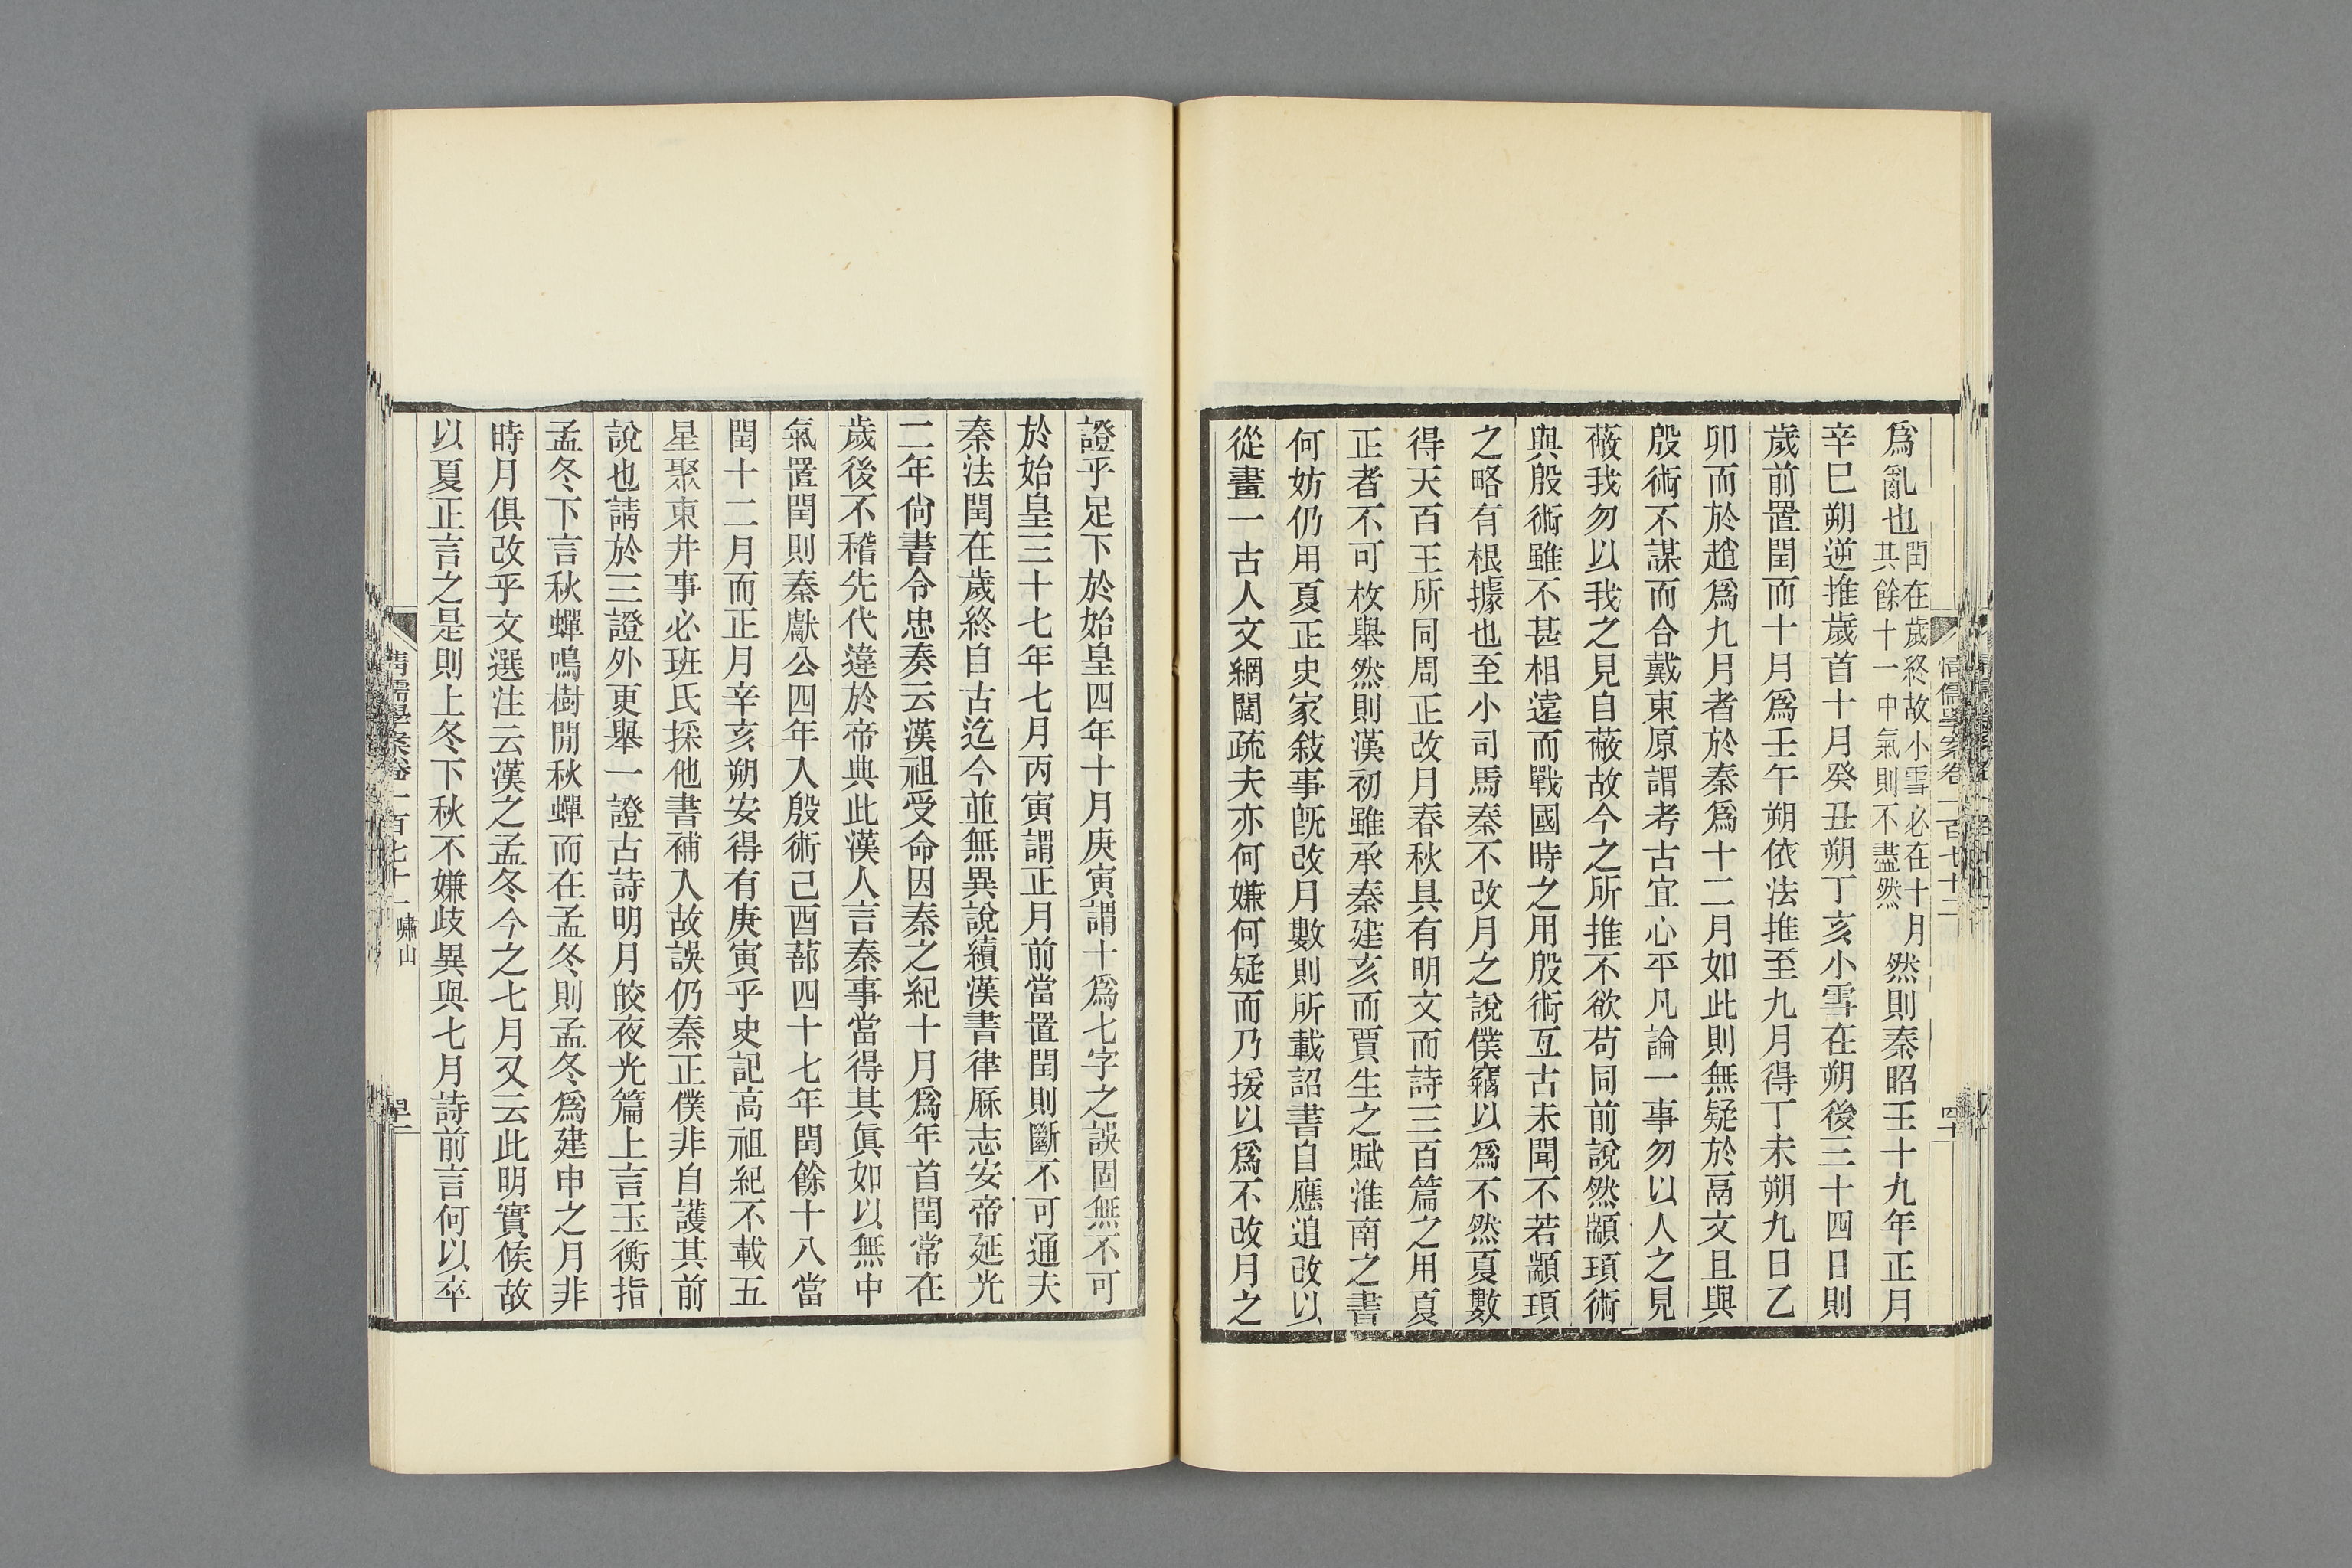 爲亂也閏在歲終故小雪必在十月其餘十一中氣則不盡然然則秦昭王十九年正月
辛巳朔逆推歲首十月癸丑朔丁亥小雪在朔後三十四日則
歲前置閏而十月爲壬午朔依法推至九月得丁未朔九日乙
卯而於趙爲九月者於秦爲十二月如此則無疑於鬲文且與
殷術不謀而合戴東原謂考古宜心平凡論一事勿以人之見
蔽我勿以我之見自蔽故今之所推不欲苟同前說然顓頊術
與殷術雖不甚相遠而戰國時之用殷術亙古未聞不若顓頊
之略有根據也至小司馬秦不改月之說僕竊以爲不然夏數
得天百王所同周正改月春秋具有明文而詩三百篇之用夏
正者不可枚舉然則漢初雖承秦建亥而賈生之賦淮南之書
何妨仍用夏正史家敍事旣改月數則所載詔書自應追改以
從畫一古人文網闊疏夫亦何嫌何疑而乃援以爲不改月之
清儒學案卷一百七十二
四十
證乎足下於始皇四年十月庚寅謂十爲七字之誤固無不可
於始皇三十七年七月丙寅謂正月前當置閏則斷不可通夫
秦法閏在歲終自古迄今並無異說續漢書律厤志安帝延光
二年尙書令忠奏云漢祖受命因秦之紀十月爲年首閏常在
歲後不稽先代違於帝典此漢人言秦事當得其眞如以無中
氣置閏則秦獻公四年入殷術己酉蔀四十七年閏餘十八當
閏十二月而正月辛亥朔安得有庚寅乎史記高祖紀不載五
星聚東井事必班氏採他書補入故誤仍秦正僕非自護其前
說也請於三證外更舉一證古詩明月皎夜光篇上言玉衡指
孟冬下言秋蟬鳴樹閒秋蟬而在孟冬則孟冬爲建申之月非
時月俱改乎文選注云漢之孟冬今之七月又云此明實候故
以夏正言之是則上冬下秋不嫌歧異與七月詩前言何以卒
清儒學案卷一百七十二 嘯山